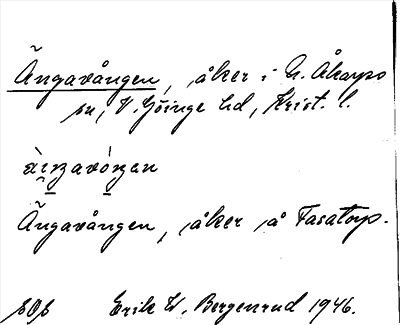 Ängavången, åker i N. Åkarps
sn, V. Göinge hd, Krist. l.
Ängavången, åker å Fasatorp.
Erik W. Bergenrud 1946.